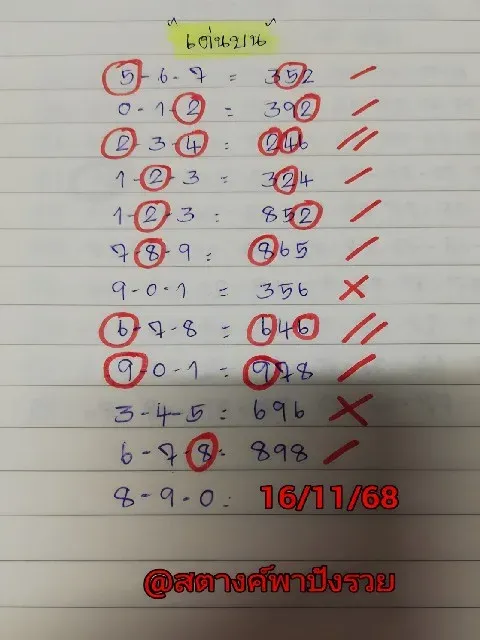 "เด่นบน"
5-6-7 = 352
0-1-2 = 392
2-3-4 = 246
1-2-3 = 324
1-2-3 = 852
7-8-9 = 865
9-0-1 = 356
6-7-8 = 646
9-0-1 = 978
3-4-5 = 696
6-7-8 = 898
8-9-0 = 16/11/68
@สตางค์พาปังรวย